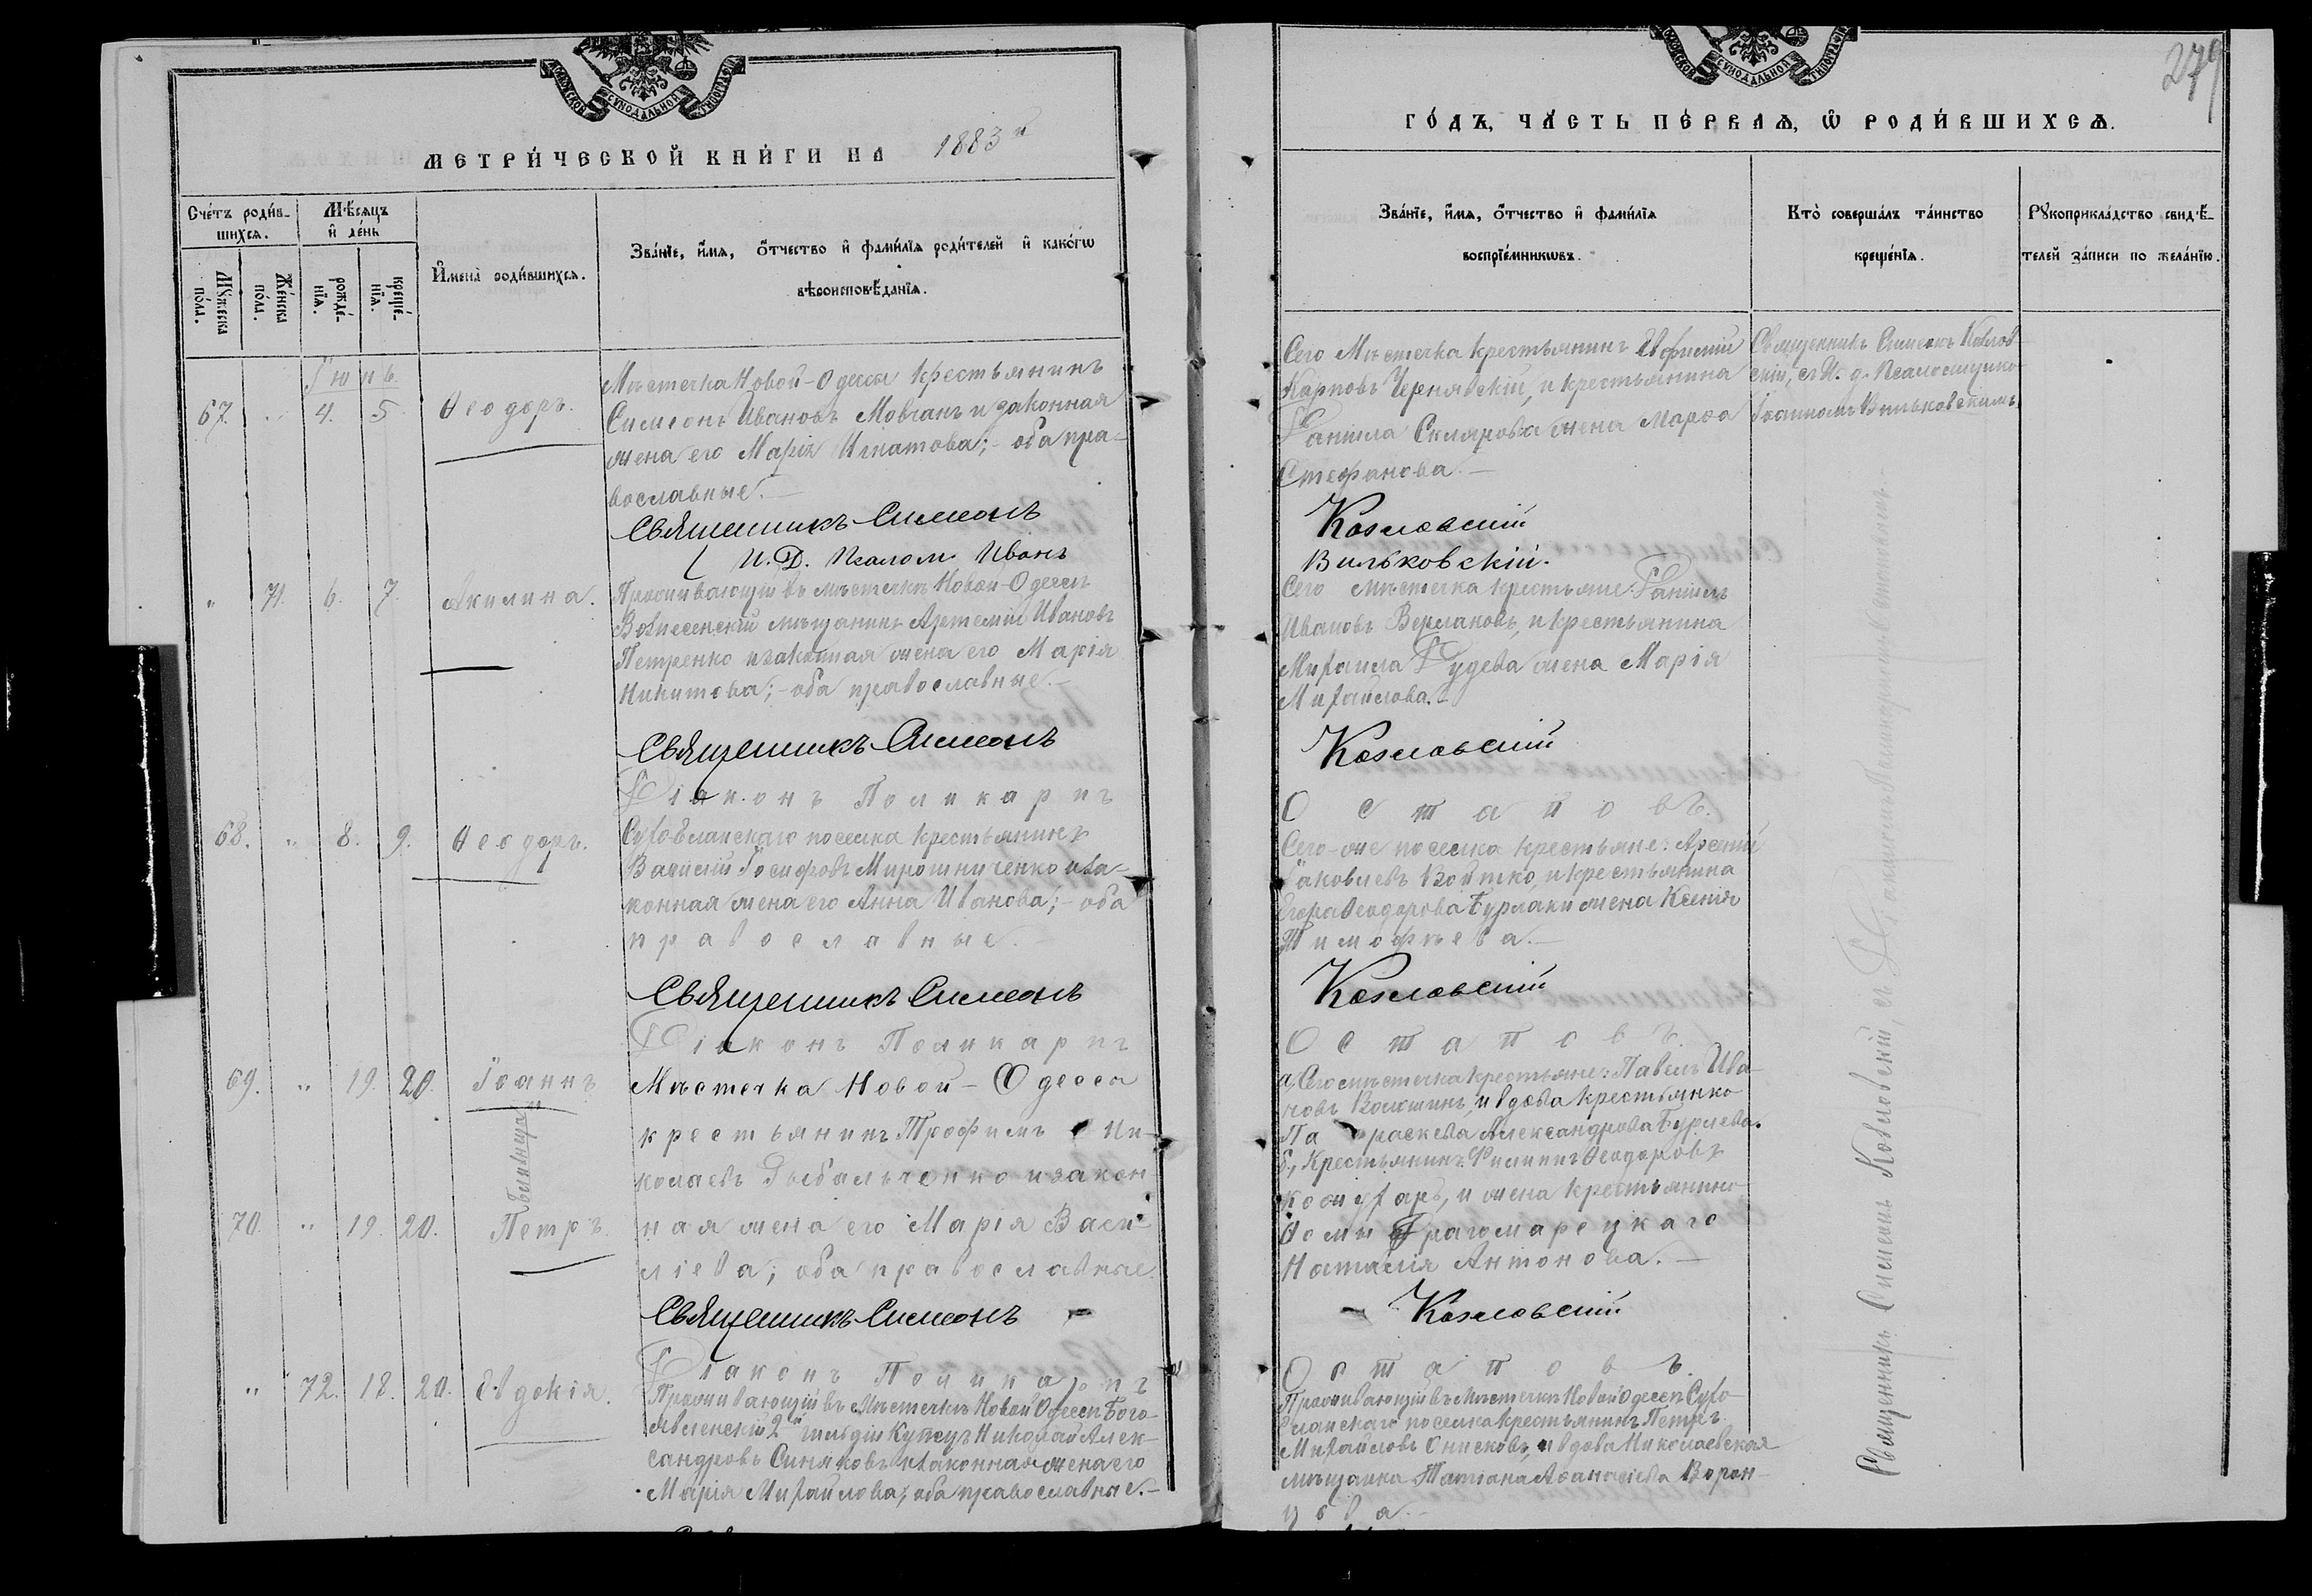 МЕТРИ́ЧЕСКОЙ КНИ́ГИ НА 1883 й
Сче́тъ роди́в-
шихсѧ.
Мѣ́сѧцъ
и҆ де́нь
Мꙋ́жеска
по́ла.
Же́нска
по́ла.
рожде́-
нїѧ.
креще́-
нїѧ.
И҆мена̀ роди́вшихсѧ.
Зва́нїе, и҆́мѧ, ѻ҆́тчество и҆ фами́лїѧ роди́телей и҆ како́гѡ
вѣроисповѣ́данїѧ.
Іюнь
67. " 4. 5. Ѳеодоръ.
Мѣстечка Новой-Одессы крестьянинъ
Симеонъ Ивановъ Мовчанъ и законная
жена его Марія Игнатова; - оба пра-
вославные. —
Священникъ Симеонъ
И. Д. Псалом. Иванъ
" 71. 6. 7. Акилина.
Проживающій въ мѣстечкѣ Новой-Одессѣ
Вознесенскій мѣщанинъ Артемій Ивановъ
Петренко и законная жена его Марія
Никитова; - оба православные. —
Священникъ Симеонъ
Діаконъ Поликарпъ
68. " 8. 9. Ѳеодоръ.
Сухоеланскаго поселка крестьянинъ
Василій Іосифовъ Мирошниченко и за-
конная жена его Анна Иванова; - оба
православные. —
Священникъ Симеонъ
Діаконъ Поликарпъ
69. " 19. 20. Іоаннъ
близнецы
70. " 19. 20. Петръ.
Мѣстечка Новой - Одесса
крестьянинъ Трофимъ Ни-
колаевъ Рыбальченко и закон
ная жена его Марія Васи-
ліева; оба православные.
Священникъ Симеонъ
Діаконъ Поликарпъ
" 72. 18. 20. Евдокія.
Проживающій въ Мѣстечкѣ Новой Одессѣ Бого-
явленскій 2й гильдіи Купецъ Николай Алек-
сандровъ Синяковъ и законная жена его
Марія Михайлова; оба православные. —
279
ГО́ДЪ, ЧА́СТЬ ПЕ́РВАѦ, Ѡ҆ РОДИ́ВШИХСѦ.
Зва́нїе, и҆́мѧ, ѻ҆́тчество и҆ фами́лїѧ
воспрїе́мникѡвъ.
Кто̀ соверша́лъ та́инство
креще́нїѧ.
Рꙋкоприкла́дство свидѣ́-
телей за́писи по жела́нїю.
Сего Мѣстечка крестьянинъ Евфимій
Карповъ Чернявскій, и крестьянина
Даніила Склярова жена Марѳа
Стефанова. —
Священникъ Симеонъ Козлов-
скій, съ И. д. Псаломщика
Іоанномъ Вильковскимъ.
Козловскій
Вильковскій.
Сего мѣстечка крестьяне: Даніилъ
Ивановъ Верлановъ, и крестьянина
Михаила Гудева жена Марія
Михайлова. —
Козловскій
Остаповъ.
Сего-же поселка крестьяне: Арсеній
Іаковлевъ Войтко, и крестьянина
Егора Ѳеодорова Бурлаки жена Ксенія
Тимофѣева. —
Козловскій
Остаповъ.
а, Сего мѣстечка крестьяне: Павелъ Ива-
новъ Волошинъ, и вдова крестьянка
Параскева Александрова Бурлева.
б, Крестьянинъ Филиппъ Ѳеодоровъ
Кожухарь, и жена крестьянина
Ѳомы Драгомарецкаго
Наталія Антонова. —
Козловскій
Остаповъ.
Проживающій въ Мѣстечкѣ Новой Одессѣ Сухо-
еланскаго поселка крестьянинъ Петръ
Михайловъ Онисковъ, и вдова Николаевская
мѣщанка Татіана Аѳанасіева Ворон-
цева. —
Священникъ Симеонъ Козловскій, съ Діакономъ Поликарпомъ Остаповымъ. —